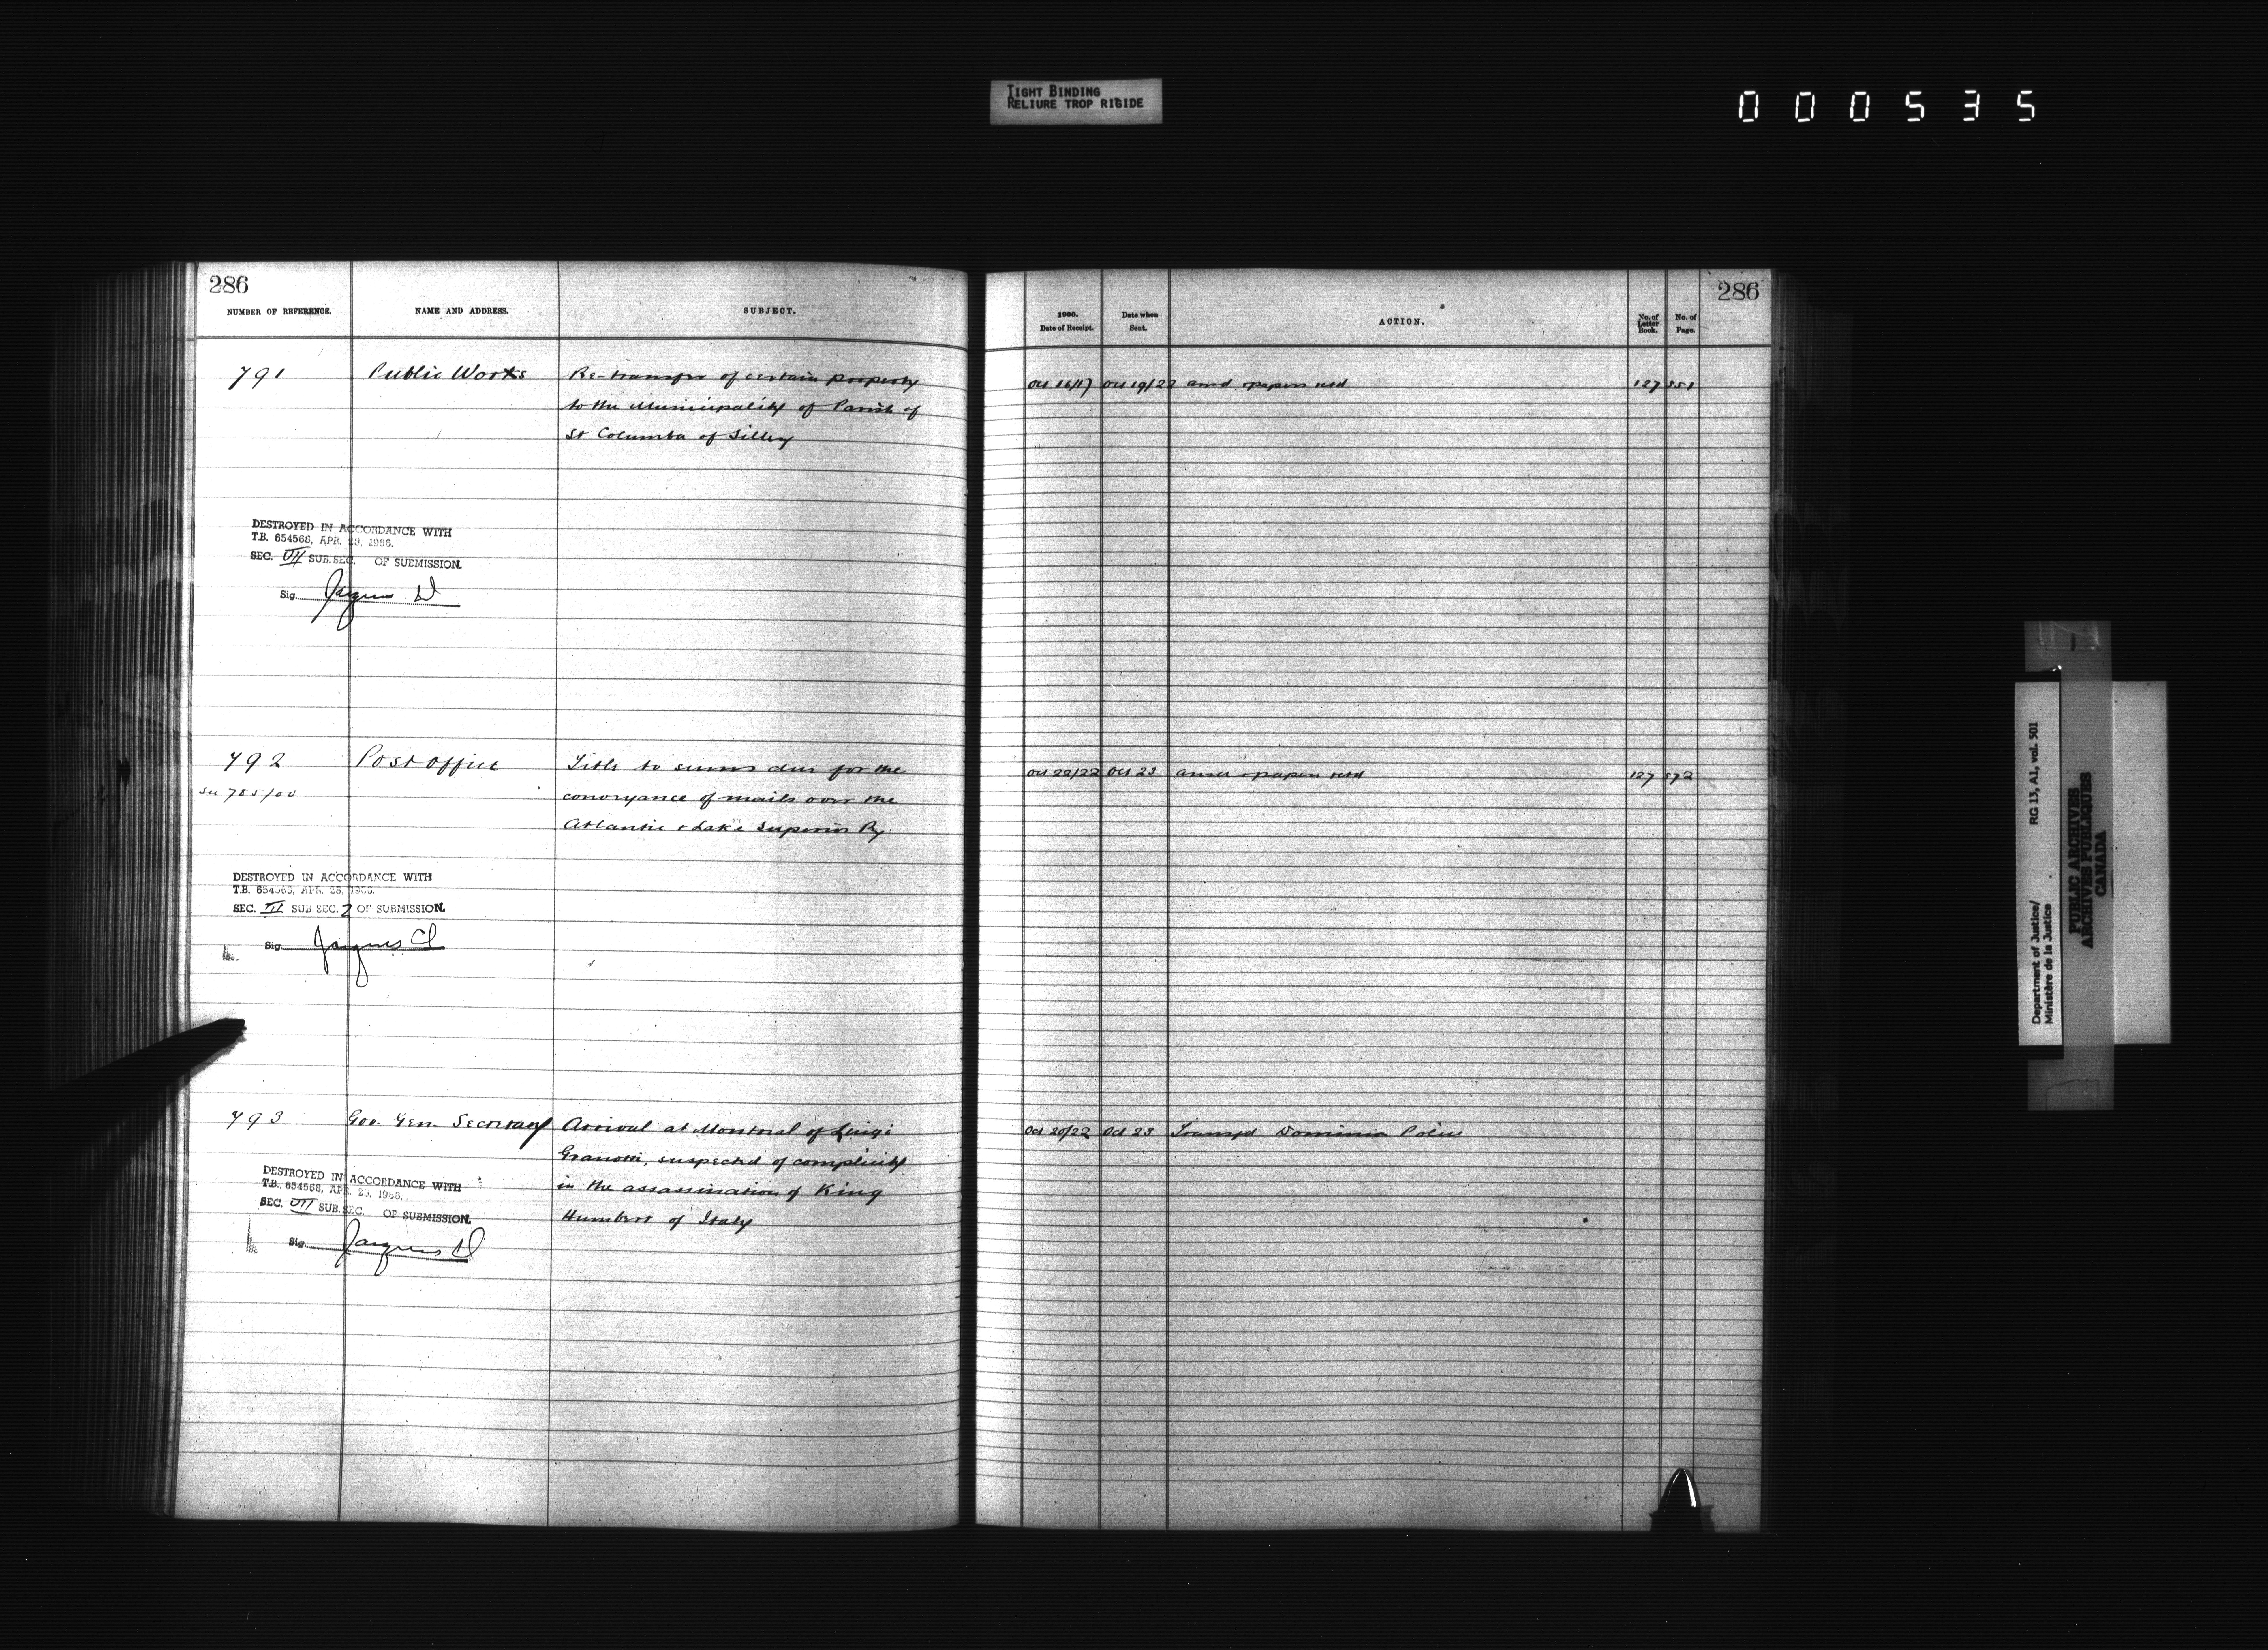 TIGHT BINDING
RELIURE TROP RIGIDE
000535
286
NUMBER OF REFERENCE.
NAME AND ADDRESS.
SUBJECT.
791
Public Works
Re-transfer of certain property
to the Municipality of Parish of
St Columba of Sillery
DESTROYED IN ACCORDANCE WITH
T.B. 654568, APR. 1966.
SEC. VII SUB.SEC. OF SUBMISSION.
Sig. Jacques
792
Post Office
Title to sums due for the
see 785/00
conveyance of mails over the
Atlantic & Lake Superior Ry
DESTROYED IN ACCORDANCE WITH
T.B. APR. 25, 1966.
SEC. III SUB.SEC. 2 OF SUBMISSION.
Sig. Jacques
793
Gov. Gen. Secretary
Arrival at Montreal of Luigi
Granotti, suspected of complicity
in the assassination of King
Humbert of Italy
DESTROYED IN ACCORDANCE WITH
T.B. 654568, APR. 25, 1966.
SEC. VII SUB.SEC. OF SUBMISSION.
Sig. Jacques
286
1900.
Date of Receipt.
Date when
Sent.
ACTION.
No. of
Letter
Book.
No. of
Page.
Oct 16/17 Oct 19/22 papers retd 127 351
Oct 22/22 Oct 23 papers retd 127 372
Oct 20/22 Oct 23 Transfd Dominion Police
Department of Justice/
Ministère de la Justice
RG 13, A1, vol. 501
PUBLIC ARCHIVES
ARCHIVES PUBLIQUES
CANADA